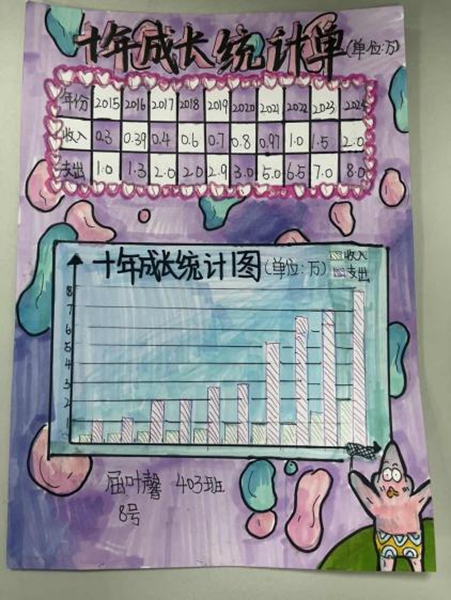 十年成长统计单(单位:万)
年份 2015 2016 2017 2018 2019 2020 2021 2022 2023 2024
收入 0.3 0.39 0.4 0.6 0.7 0.8 0.97 1.0 1.5 2.0
支出 1.0 1.3 2.0 2.0 2.9 3.0 5.0 6.5 7.0 8.0
十年成长统计图(单位:万) 收入
支出
8
7
6
5
4
3
2
1
屈叶馨 403班
8号